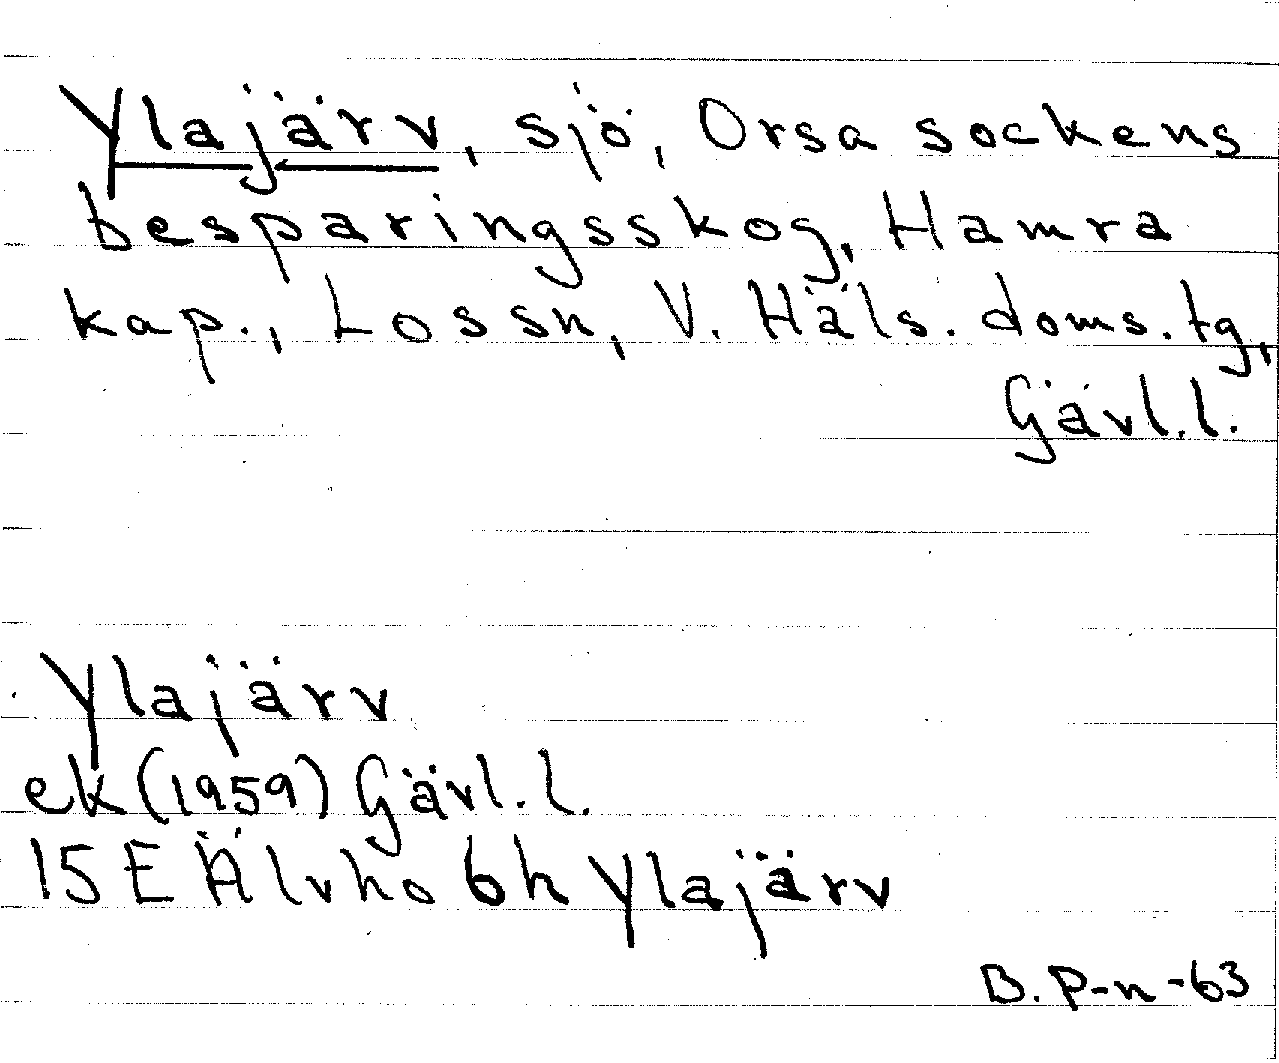 Ylajärv, sjö, Orsa sockens
besparingsskog, Hamra
kap., Lossn, V. Häls. doms. tg,
Gävl.l.
Ylajärv
ek (1959) Gävl.l.
15 E Älvho 6h Ylajärv
B. P-n -63